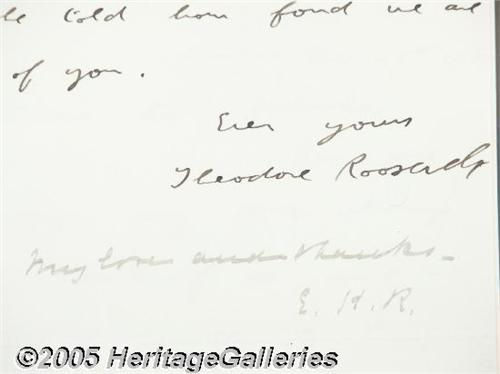 told how fond we are
of you.
Ever yours
Theodore Roosevelt
My love and thanks.
E. K. R.
©2005 HeritageGalleries